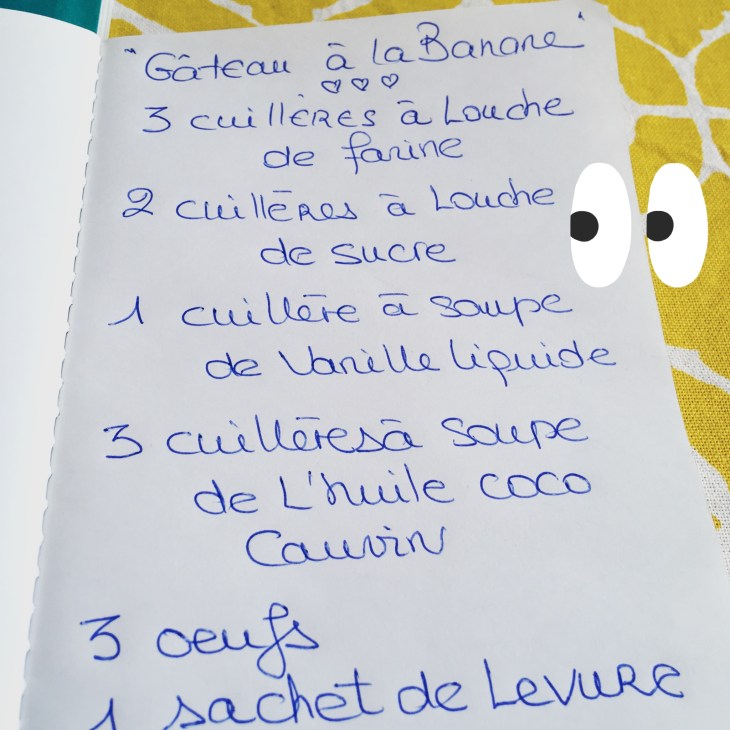 "Gâteau à la Banane"
3 cuillères à Louche
de farine
2 cuillères à Louche
de sucre
1 cuillère à soupe
de Vanille liquide
3 cuillères à soupe
de L'huile coco
Cauvin
3 oeufs
1 sachet de Levure